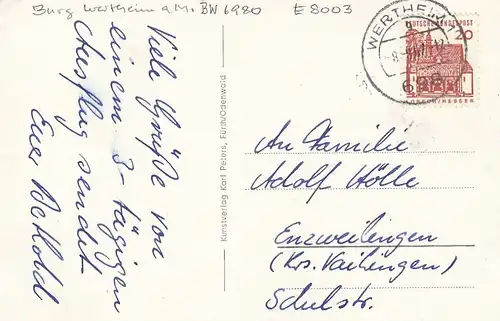 Burg Wertheim a.M. BW 6980 E 8003
Viele Grüße von
einem 3-tägigen
Ausflug sendet
Eva Bethold
Kunstverlag Karl Peters, Fürth/Odenwald
WERTHEIM 1
698
DEUTSCHE BUNDESPOST
20
LORSCH/HESSEN
An Familie
Adolf Hölle
Enzweihingen
(Krs. Vaihingen)
Schulstr.